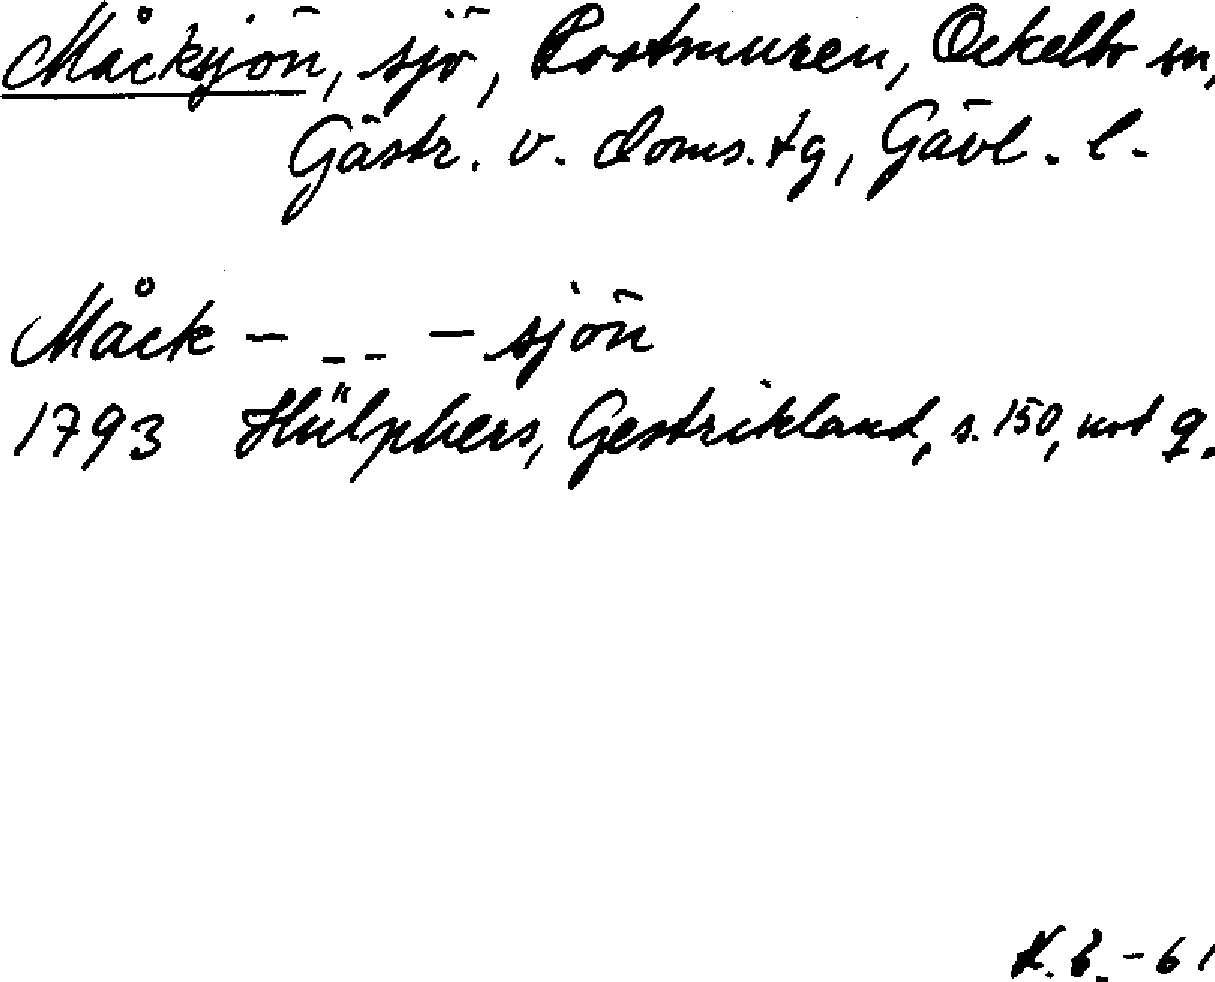 Måcksjön, sjö, Rostmuren, Ockelbo sn,
Gästr. v. doms.tg, Gävl. l.
Måck - _ _ - sjön
1793 Hülphers, Gestrikland, s. 150, not q.
K. B. -61